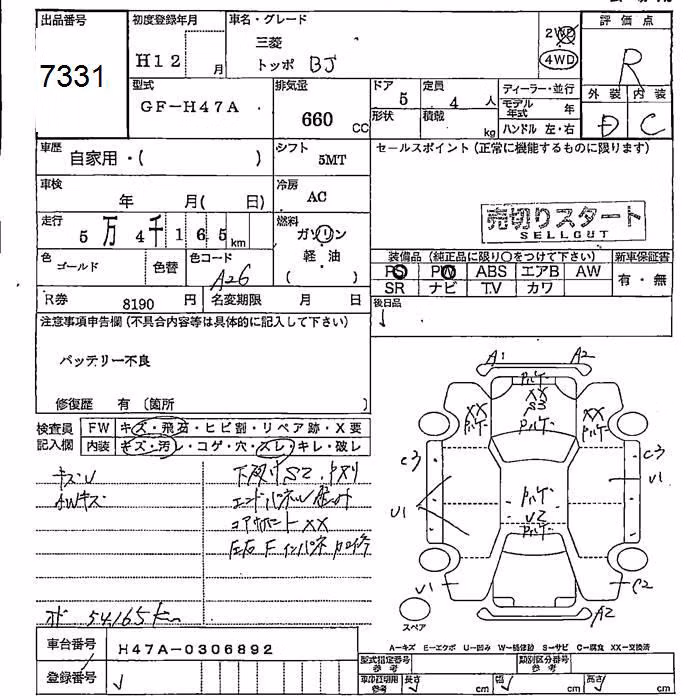 出品番号
7331
初度登録年月
H12 月
車名・グレード
三菱
トッポ BJ
2WD
4WD
評価点
R
外装 内装
D C
型式
GF-H47A
排気量
660 CC
ドア
5
定員
4 人
形状
積載
kg
ディーラー・並行
モデル年式 年
ハンドル 左・右
車歴
自家用・( )
シフト
5MT
セールスポイント(正常に機能するものに限ります)
車検
年 月( 日)
冷房
AC
売切りスタート
SELLOUT
走行
5万4千165km
燃料
ガソリン
軽・油
( )
色
ゴールド
色替
色コード
A26
装備品(純正品に限り○をつけて下さい)
PS PW ABS エアB AW
SR ナビ T.V カワ
新車保証書
有・無
R券 8190 円
名変期限 月 日
後日品
注意事項申告欄(不具合内容等は具体的に記入して下さい)
バッテリー不良
修復歴 有 〔箇所 〕
検査員記入欄
FW キズ・飛石・ヒビ割・リペア跡・X要
内装 キズ・汚レ・コゲ・穴・スレ・キレ・破レ
キズU
AWキズ
下廻り S2
エンドパネル
コアサポート XX
左右 F インパネ
54,165km
A1 A2
XX
S3
XX
XX
C3
C3
U1
U1
U2
U1
C2
A2
スペア
A-キズ E-エクボ U-凹み W-補修跡 S-サビ C-腐食 XX-交換済
車台番号
H47A-0306892
登録番号
型式指定番号 参考
類別区分番号 参考
車庫証明用 参考
長さ cm 幅 cm 高さ cm